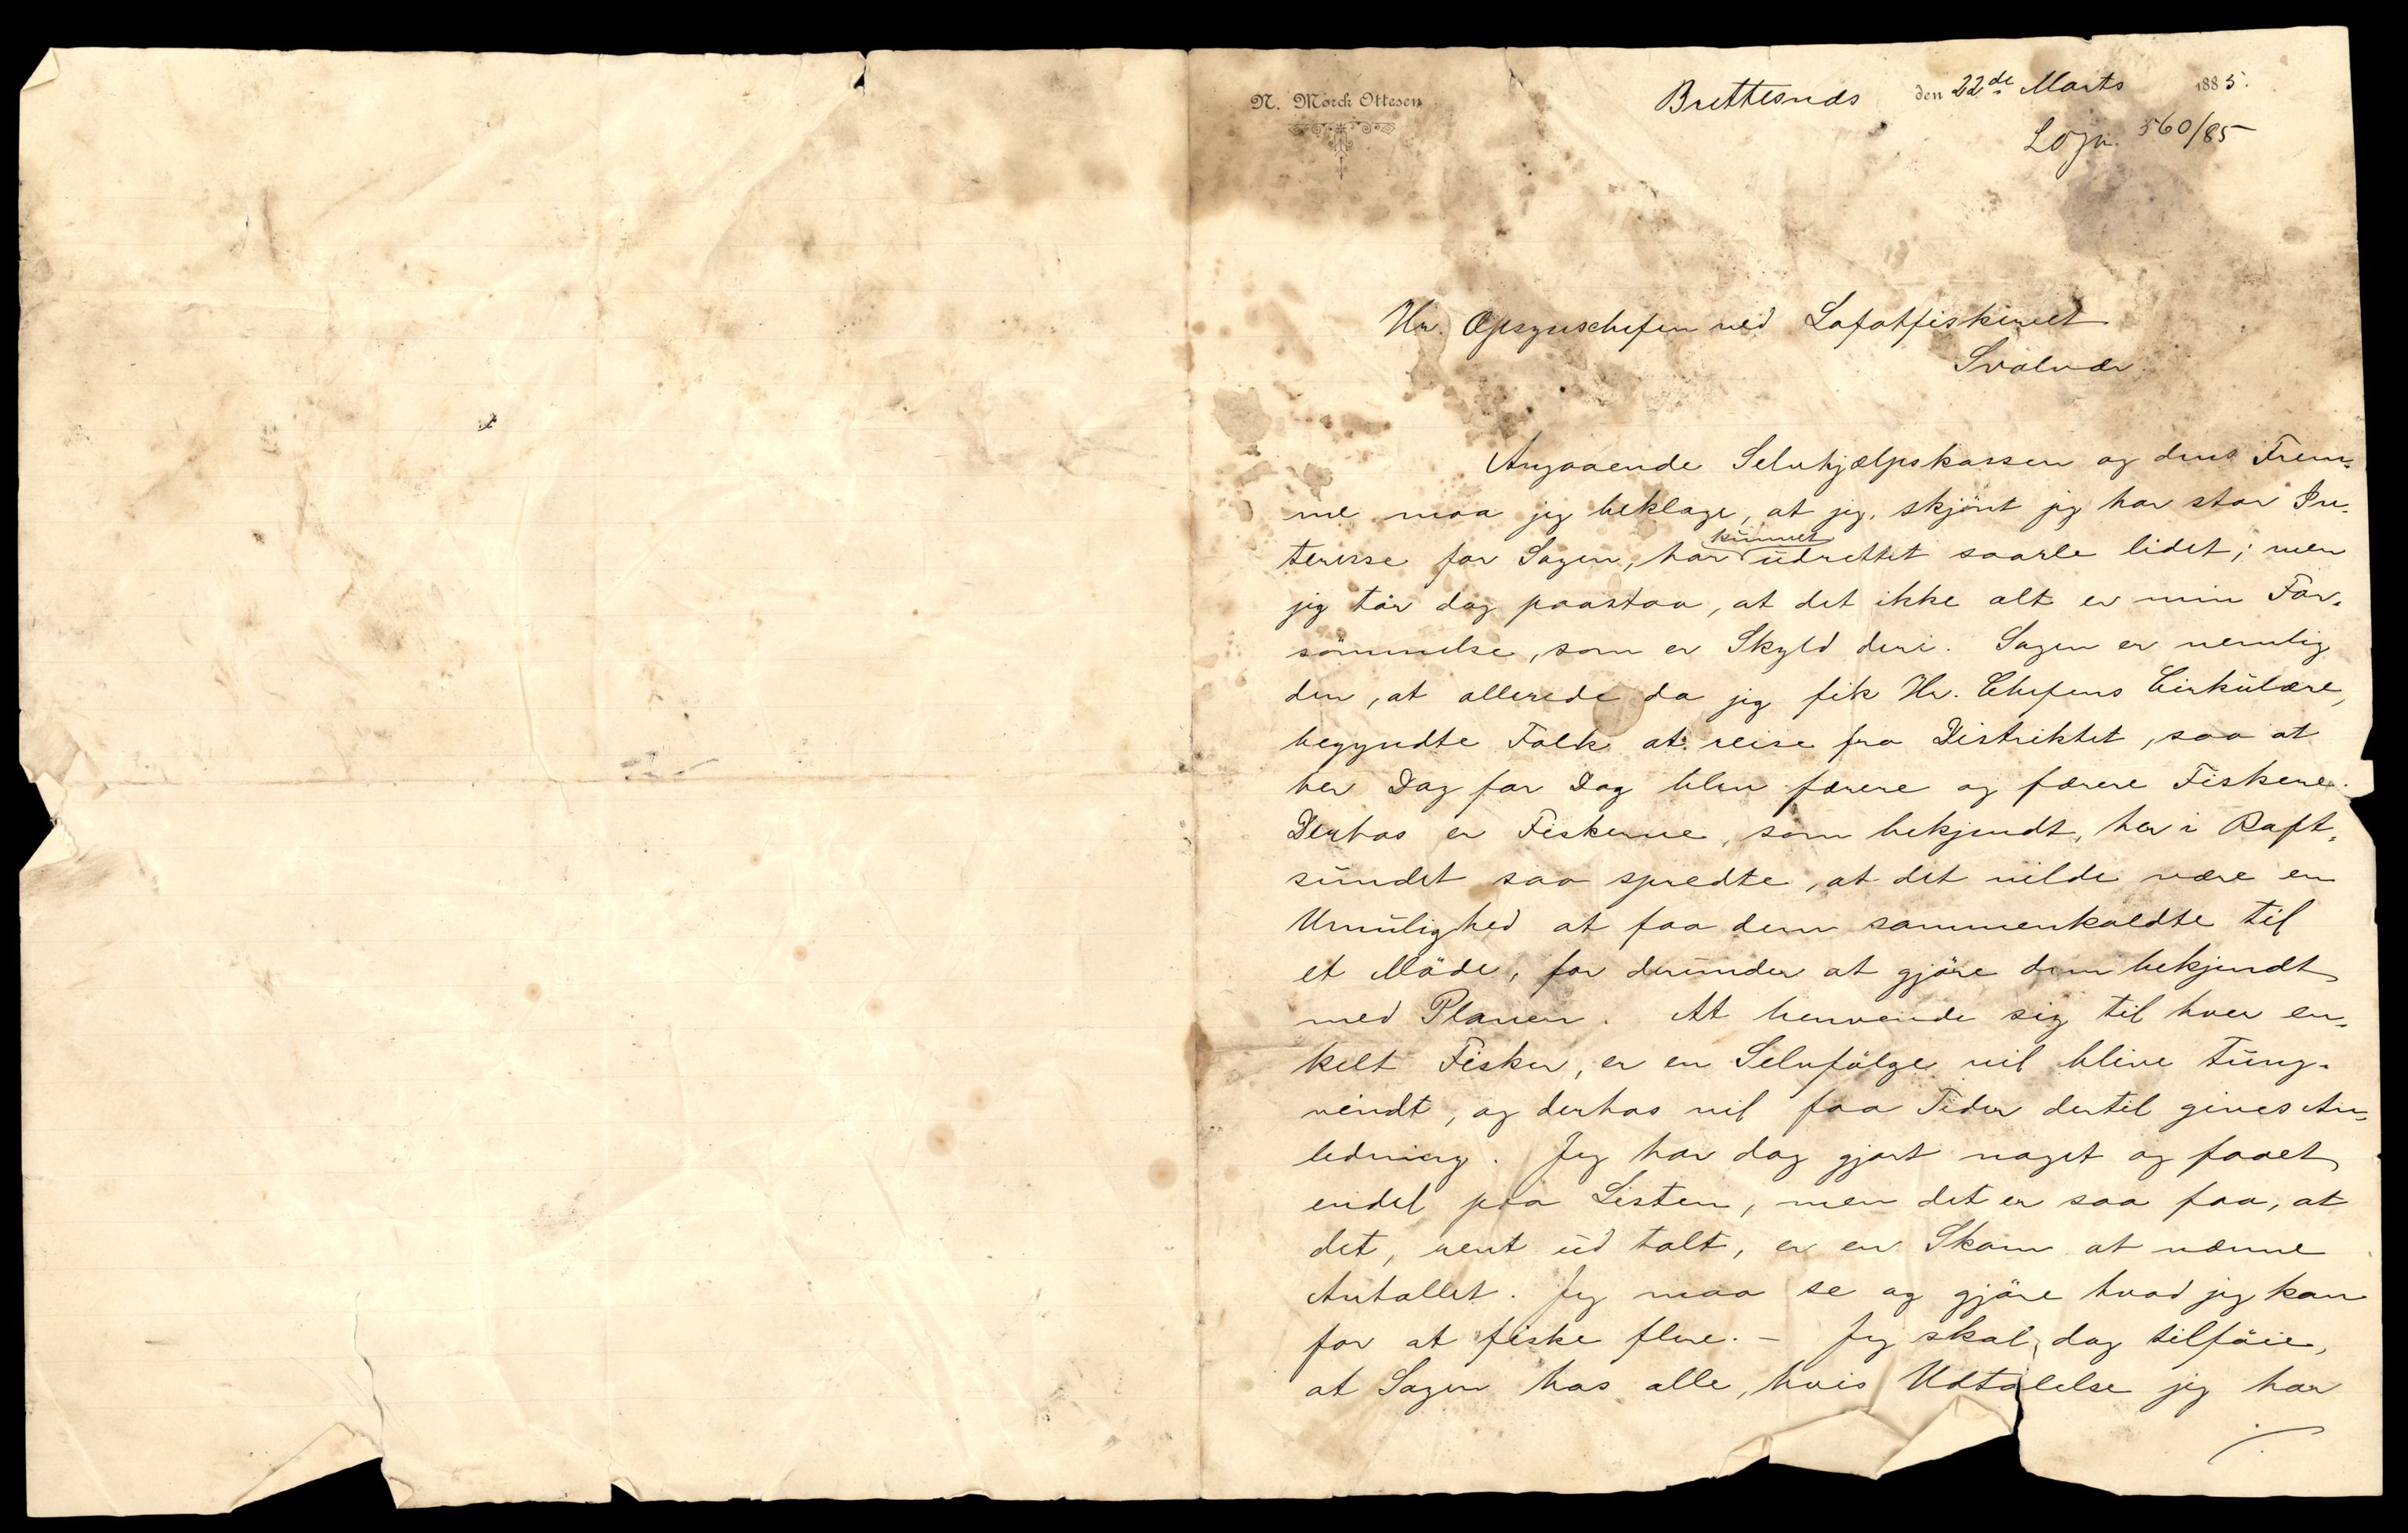 N. Mörch Ottesen
Brettesnds den 22de Marts 1885.
LOJn. 560/85
Hr. Opsynschefen ved Lofotfiskeriet
Svolvær
Angaaende Selvhjælpskassen og dens Frem-
me maa jeg beklage, at jeg, skjönt jeg har stor In-
teresse for Sagen, har kunnet udrettet saare lidet; men
jeg tör dog paastaa, at det ikke alt er min For-
sömmelse, som er Skyld deri. Sagen er nemlig
den, at allerede da jeg fik Hr. Chefens Cirkulære,
begyndte Folk at reise fra Distriktet, saa at
her Dag for Dag blev færre og færre Fiskere.
Derhos er Fiskerne, som bekjendt, her i Raft-
sundet saa spredte, at det vilde være en
Umulighed at faa dem sammenkaldte til
et Möde, for derunder at gjöre dem bekjendt
med Planen. At henvende sig til hver en-
kelt Fisker, er en Selvfölge vil blive tung-
vindt, og derhos vil faa Tider dertil gives An-
ledning. Jeg har dog gjort noget og faaet
endel paa Listen, men det er saa faa, at
det, rent ud talt, er en Skam at nævne
Antallet. Jeg maa se og gjöre hvad jeg kan
for at fiske flere. – Jeg skal dog tilföie,
at Sagen hos alle, hvis Udtalelse jeg har
./.